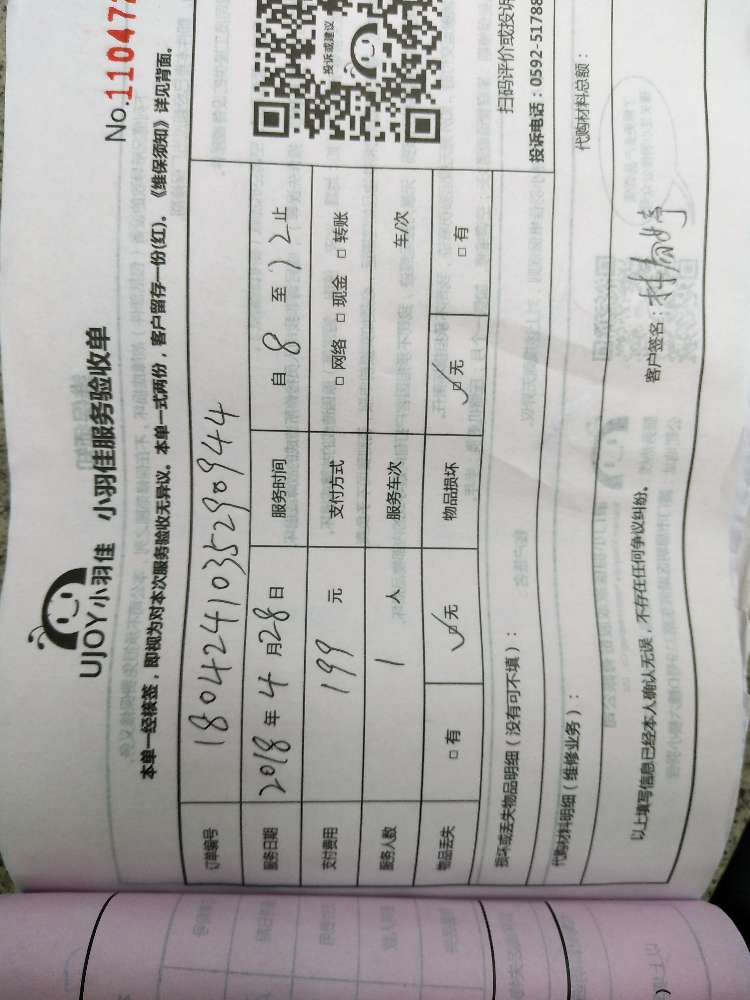 No.110472
UJOY小羽佳 小羽佳服务验收单
本单一经核签，即视为对本次服务验收无异议。本单一式两份，客户留存一份(红)。《维保须知》详见背面。
订单编号 1804241035290944
服务日期 2018年4月28日 服务时间 自8至12止
支付费用 199元 支付方式 □网络 □现金 □转账
服务人数 1人 服务车次 车/次
物品丢失 □有 ☑无 物品损坏 ☑无 □有
损坏或丢失物品明细（没有可不填）：
投诉或建议
扫码评价或投诉
投诉电话：0592-51788
代购材料明细（维修业务）： 代购材料总额：
以上填写信息已经本人确认无误，不存在任何争议纠纷。 客户签名：林